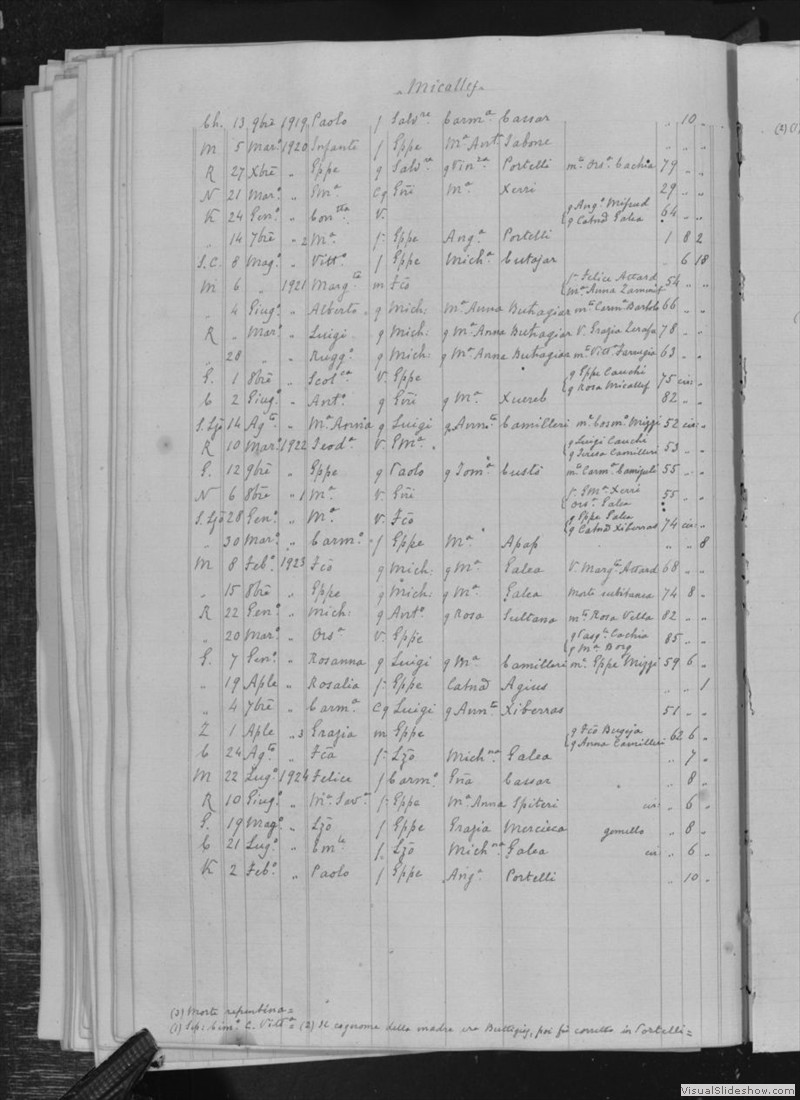 „ Micallef „
Ch. 13 9bre 1919 Paolo f Salvre Carma Cassar „ 10 „
M 5 Mar.o 1920 Infante f Eppe Ma Ant. Sabone „ „ „
R 27 Xbre „ Eppe g Salvre g Portelli mo Orsa Cachia 79 „ „
N 21 Mar.o „ Ema Cg Gni Ma Xerri 29 „ „
K 24 Gen.o „ V. g Ang.o Mifsud g Catnd Galea 64 „ „
„ 14 7bre „ 2 Ma f. Eppe Ang.a Portelli 1 8 2
S.C. 8 Mag.o „ Vitt.a f Eppe Mich.a Cutajar „ 6 18
M 6 „ 1921 Marg.ta m Fco f. Felice Attard Ma Anna Zammit 54 „ „
„ 4 Giug.o „ Alberto „ g Mich: Ma Anna Buhagiar mo Carma Bartolo 66 „ „
R „ Mar.o „ Luigi g Mich: g Ma Anna Buhagiar V. Grazia 78 „ „
„ 28 „ „ Rugg.o g Mich: g Ma Anna Buhagiar mo Vitt.a Farrugia 63 „ „
G. 1 8bre „ Scolca V. Eppe g Eppe Cauchi g Rosa Micallef 75 cir: „
C 2 Giug.o „ Ant.o g Gni g Ma Xuereb 82 „ „
S.Lzo 14 Ag.to „ Ma Anna g Luigi g Annta Camilleri mo Cosmo Mizzi 52 cir: „
R 10 Mar.o 1922 Teoda V. Ema g Luigi Cauchi g Teresa Camilleri 53 „ „
G. 12 9bre „ Eppe g Paolo g Toma Custò mo Carma 55 „ „
N 6 8bre „ 1 Ma V. Gni f. Ema Xerri Orsa Galea 55 „ „
S.Lzo 28 Gen.o „ Ma V. Fco g Eppe Galea g Catnd Xiberras 74 cir: „
„ 30 Mar.o „ Carmo f Eppe Ma Apap „ „ 8
M 8 Feb.o 1923 Fco g Mich: g Ma Galea V. Marg.ta Attard 68 „ „
„ 15 8bre „ Eppe g Mich: g Ma Galea Morte subitanea 74 8 „
R 22 Gen.o „ Mich: g Ant.o g Rosa Sultana mo Rosa Vella 82 „ „
„ 20 Mar.o „ Orsa V. Eppe g Pasqle Cachia g Ma Borg 85 „ „
G. 7 Gen.o „ Rosanna g Luigi g Ma Camilleri mo Eppe Mizzi 59 6 „
„ 19 Aple „ Rosalia f. Eppe Catnd Agius „ „ 1
„ 4 7bre „ Carma Cg Luigi g Annta Xiberras 51 „ „
Z 1 Aple „ 3 Grazia m Eppe g Fco Bugeja g Anna Camilleri 62 6 „
C 24 Ag.to „ Fca f. Lzo Michna Galea „ 7 „
M 22 Lug.o 1924 Felice f Carmo Gna Cassar „ 8 „
R 10 Giug.o „ Ma Sava f. Eppe Ma Anna Spiteri cir: „ 6 „
G. 19 Mag.o „ Lzo f Eppe Grazia Mercieca gemello „ 8 „
C 21 Lug.o „ f. Lzo Michna Galea cir: „ 6 „
K 2 Feb.o „ Paolo f Eppe Ang.a Portelli „ 10 „
(3) Morte repentina =
(1) Sep: Cim.o C. Vitt.a = (2) Il cognome della madre era Buttigieg, poi fù corretto in Portelli =
(2)
VisualSlideshow.com